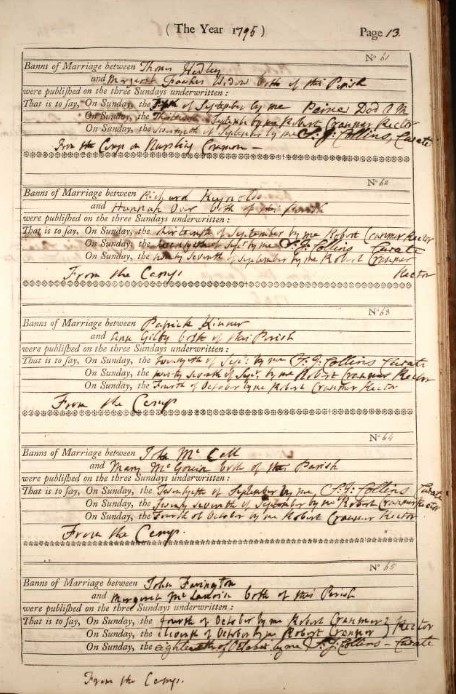 ( The Year 1795 )
Page 13.
Nº 61
Banns of Marriage between Thomas Hedley
and Margaret Widow both of this Parish
were published on the three Sundays underwritten :
That is to say, On Sunday, the of September by me Dod A.M.
On Sunday, the of September by me Robert Cranmer Rector
On Sunday, the of September by me F. J. Collins, Curate
From the Camp on Common —
Nº 62
Banns of Marriage between Richard Reynolds
and Hannah Over both of this Parish
were published on the three Sundays underwritten :
That is to say, On Sunday, the thirteenth of September by me Robert Cranmer Rector
On Sunday, the twentyeth of Sepr. by me F. J. Collins Curate
On Sunday, the twenty seventh of September by me Robert Cranmer
Rector
From the Camp.
Nº 63
Banns of Marriage between Patrick Kinner
and Ann Gilby both of this Parish
were published on the three Sundays underwritten :
That is to say, On Sunday, the twentyeth of Sepr. by me F. J. Collins Curate
On Sunday, the twenty seventh of Sepr. by me Robert Cranmer Rector
On Sunday, the Fourth of October by me Robert Cranmer Rector
From the Camp.
Nº 64
Banns of Marriage between John Mc Coll
and Mary both of this Parish
were published on the three Sundays underwritten :
That is to say, On Sunday, the Twentyeth of September by me, F. J. Collins Curate
On Sunday, the Twenty seventh of September by me Robert Cranmer Rector
On Sunday, the Fourth of October by me Robert Cranmer Rector
From the Camp.
Nº 65
Banns of Marriage between John
and Margaret both of this Parish
were published on the three Sundays underwritten :
That is to say, On Sunday, the fourth of October by me Robert Cranmer Rector
On Sunday, the eleventh of October by me Robert Cranmer
On Sunday, the eighteenth of October by me F. J. Collins — Curate
From the Camp.